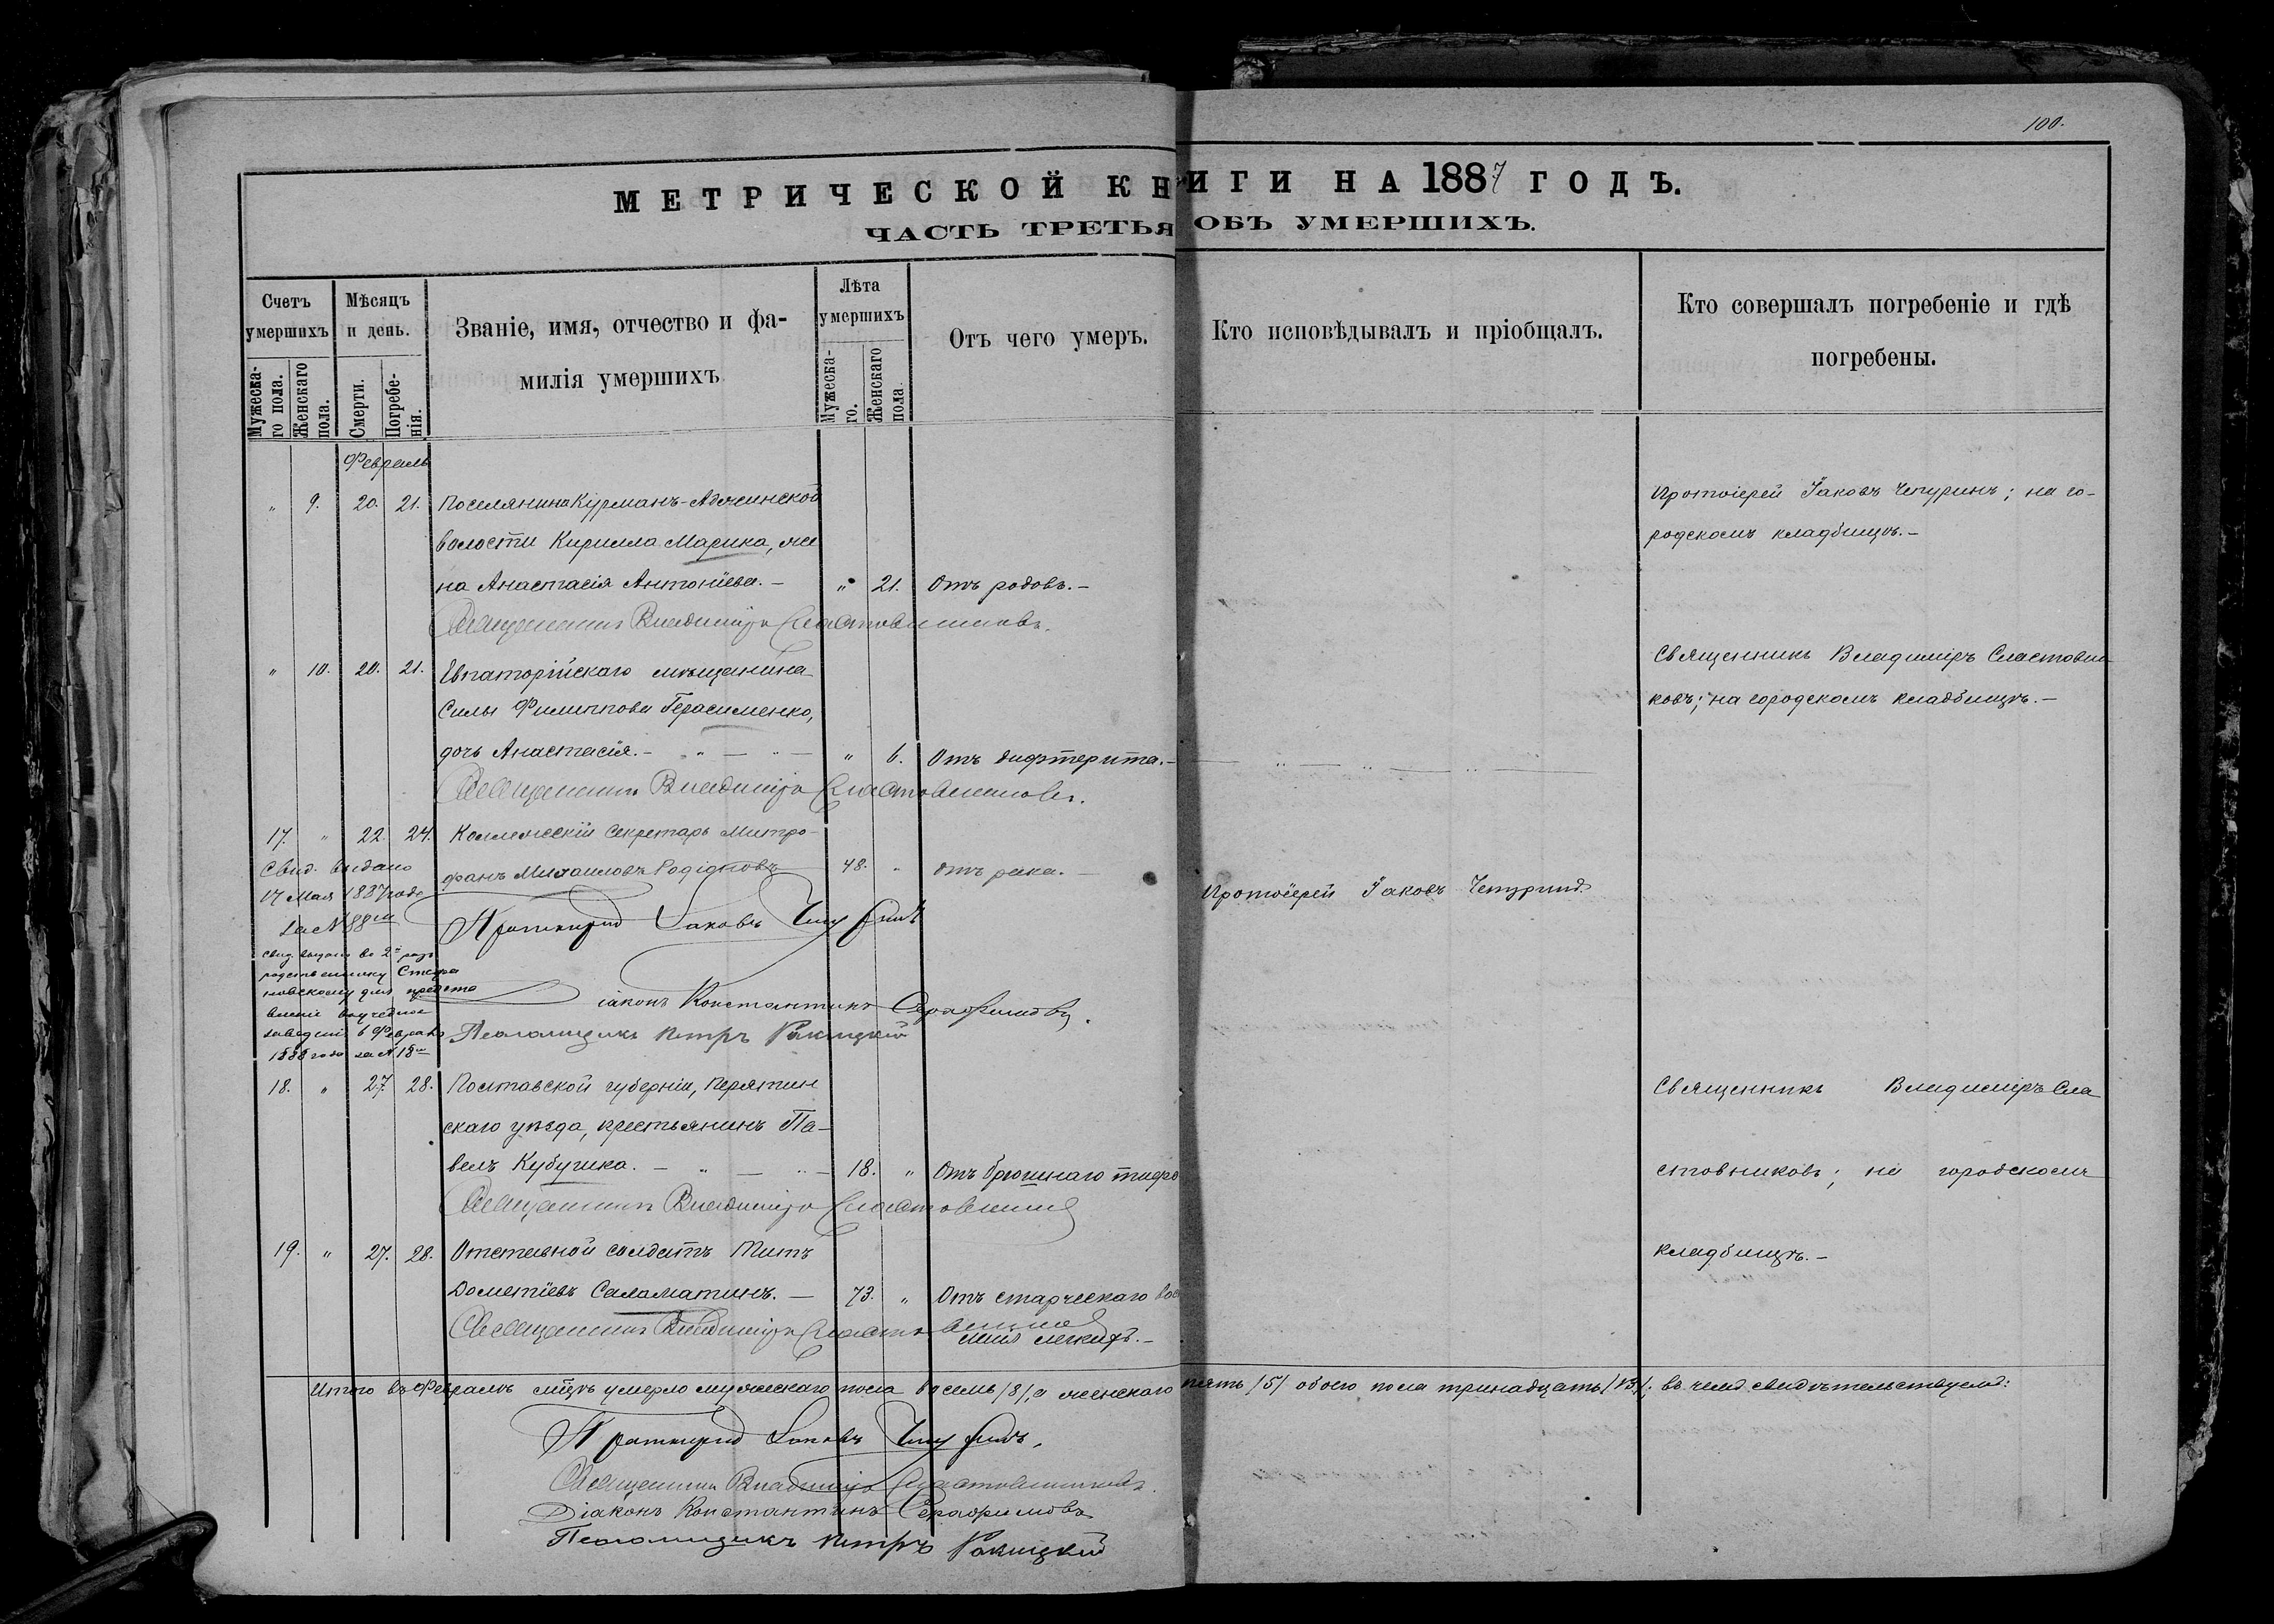 100.
МЕТРИЧЕСКОЙ КНИГИ НА 1887 ГОДЪ.
ЧАСТЬ ТРЕТЬЯ ОБЪ УМЕРШИХЪ.
Счетъ умершихъ
Мужеска-го пола.
Женскаго пола.
Мѣсяцъ и день.
Смерти.
Погребе-нія.
Званіе, имя, отчество и фа-
милія умершихъ
Лѣта умершихъ
Мужеска-го.
Женскаго пола.
Отъ чего умеръ.
Кто исповѣдывалъ и пріобщалъ.
Кто совершалъ погребеніе и гдѣ
погребены.
Февраль
„ 9. 20. 21. Поселянина Курманъ-Аджинской
волости Кирилла Марика, же
на Анастасія Антоніева. – „ 21. Отъ родовъ. –
Протоіерей Іаковъ Чепуринъ; на го-
родскомъ кладбищѣ. –
Священникъ Владиміръ Сластовниковъ.
„ 10. 20. 21. Евпаторійскаго мѣщанина
Силы Филиппова Герасименко,
дочь Анастасія. – „ – „ – „ 6. Отъ дифтерита. –
Священникъ Владиміръ Сластовни-
ковъ; на городскомъ кладбищѣ. –
Священникъ Владиміръ Сластовниковъ.
17. „ 22. 24. Коллежскій Секретарь Митро-
фанъ Михаиловъ Родіоновъ 48. „ Отъ рака. –
Протоіерей Іаковъ Чепуринъ.
Свид. выдано
17 Мая 1887 года
за № 88м
Протоіерей Іаковъ Чепуринъ
свид. выдано во 2й разъ
родственнику
заведеніе 6 Февраля
1888 года за № 18м
Діаконъ Константинъ Серафимовъ.
Псаломщикъ Петръ Ракицкій
18. „ 27. 28. Полтавской губерніи, Пирятин
скаго уѣзда, крестьянинъ Па-
велъ Кубушка. – „ – „ – 18. „ Отъ брюшнаго тифа
Священникъ Владиміръ Сла
стовниковъ; на городскомъ
кладбищѣ. –
Священникъ Владиміръ Сластовниковъ
19. „ 27. 28. Отставной солдатъ Титъ
Дометіевъ Саламатинъ. – 73. „ Отъ старческаго вос
ленія легкихъ. –
Священникъ Владиміръ Сластовниковъ
Итого въ Февралѣ мѣцѣ умерло мужескаго пола восемь /8/, а женскаго пять /5/ обоего пола тринадцать /13/; въ чемъ свидѣтельствуемъ:
Протоіерей Іаковъ Чепуринъ.
Священникъ Владиміръ Сластовниковъ.
Діаконъ Константинъ Серафимовъ
Псаломщикъ Петръ Ракицкій